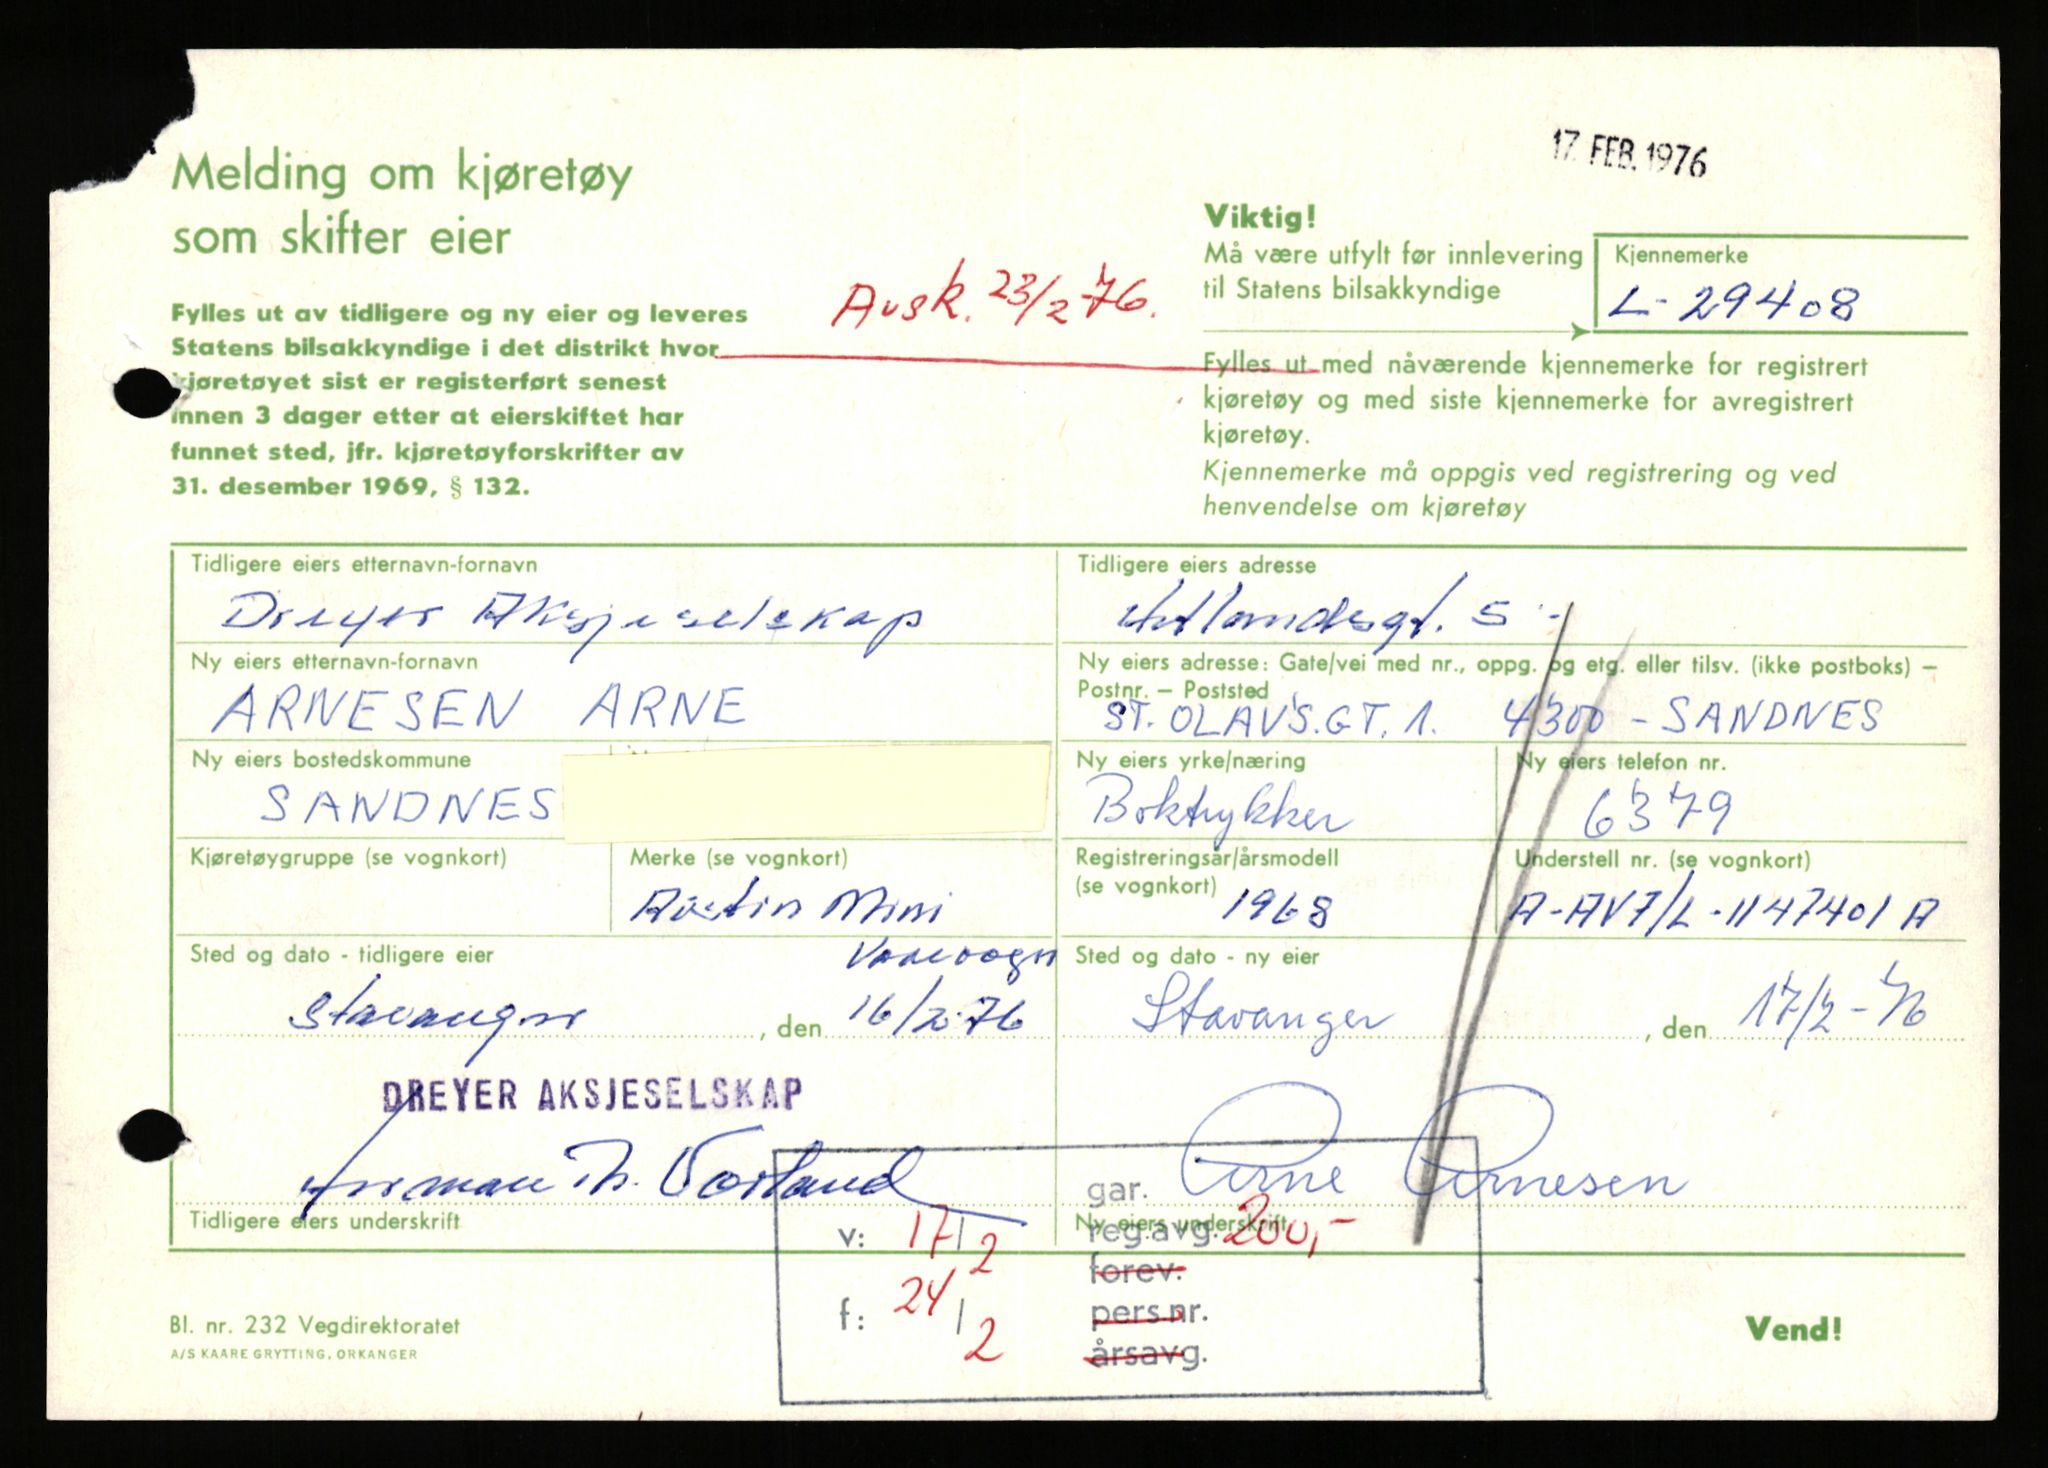 17. FEB. 1976
Melding om kjøretøy
som skifter eier
Viktig!
Må være utfylt før innlevering
til Statens bilsakkyndige
Kjennemerke
L-29408
Avsk. 23/2-76.
Fylles ut av tidligere og ny eier og leveres
Statens bilsakkyndige i det distrikt hvor
kjøretøyet sist er registerført senest
innen 3 dager etter at eierskiftet har
funnet sted, jfr. kjøretøyforskrifter av
31. desember 1969, § 132.
Fylles ut med nåværende kjennemerke for registrert
kjøretøy og med siste kjennemerke for avregistrert
kjøretøy.
Kjennemerke må oppgis ved registrering og ved
henvendelse om kjøretøy
Tidligere eiers etternavn-fornavn
Dreyer Aksjeselskap
Tidligere eiers adresse
5
Ny eiers etternavn-fornavn
ARNESEN ARNE
Ny eiers adresse: Gate/vei med nr., oppg. og etg. eller tilsv. (ikke postboks) –
Postnr. – Poststed
ST. OLAVS.GT. 1. 4300 - SANDNES
Ny eiers bostedskommune
SANDNES
Ny eiers yrke/næring
Boktrykker
Ny eiers telefon nr.
6379
Kjøretøygruppe (se vognkort)
Merke (se vognkort)
Austin Mini
Varevogn
Registreringsår/årsmodell
(se vognkort)
1968
Understell nr. (se vognkort)
A-AV7/L-1147401 A
Sted og dato - tidligere eier
Stavanger, den 16/2-76
Sted og dato - ny eier
Stavanger, den 17/2-76
DREYER AKSJESELSKAP
Arne Arnesen
Tidligere eiers underskrift
Ny eiers underskrift
gar.
v: 17/2
reg.avg. 200,-
forev.
f: 24/2
pers.nr.
årsavg.
Bl. nr. 232 Vegdirektoratet
A/S KAARE GRYTTING, ORKANGER
Vend!